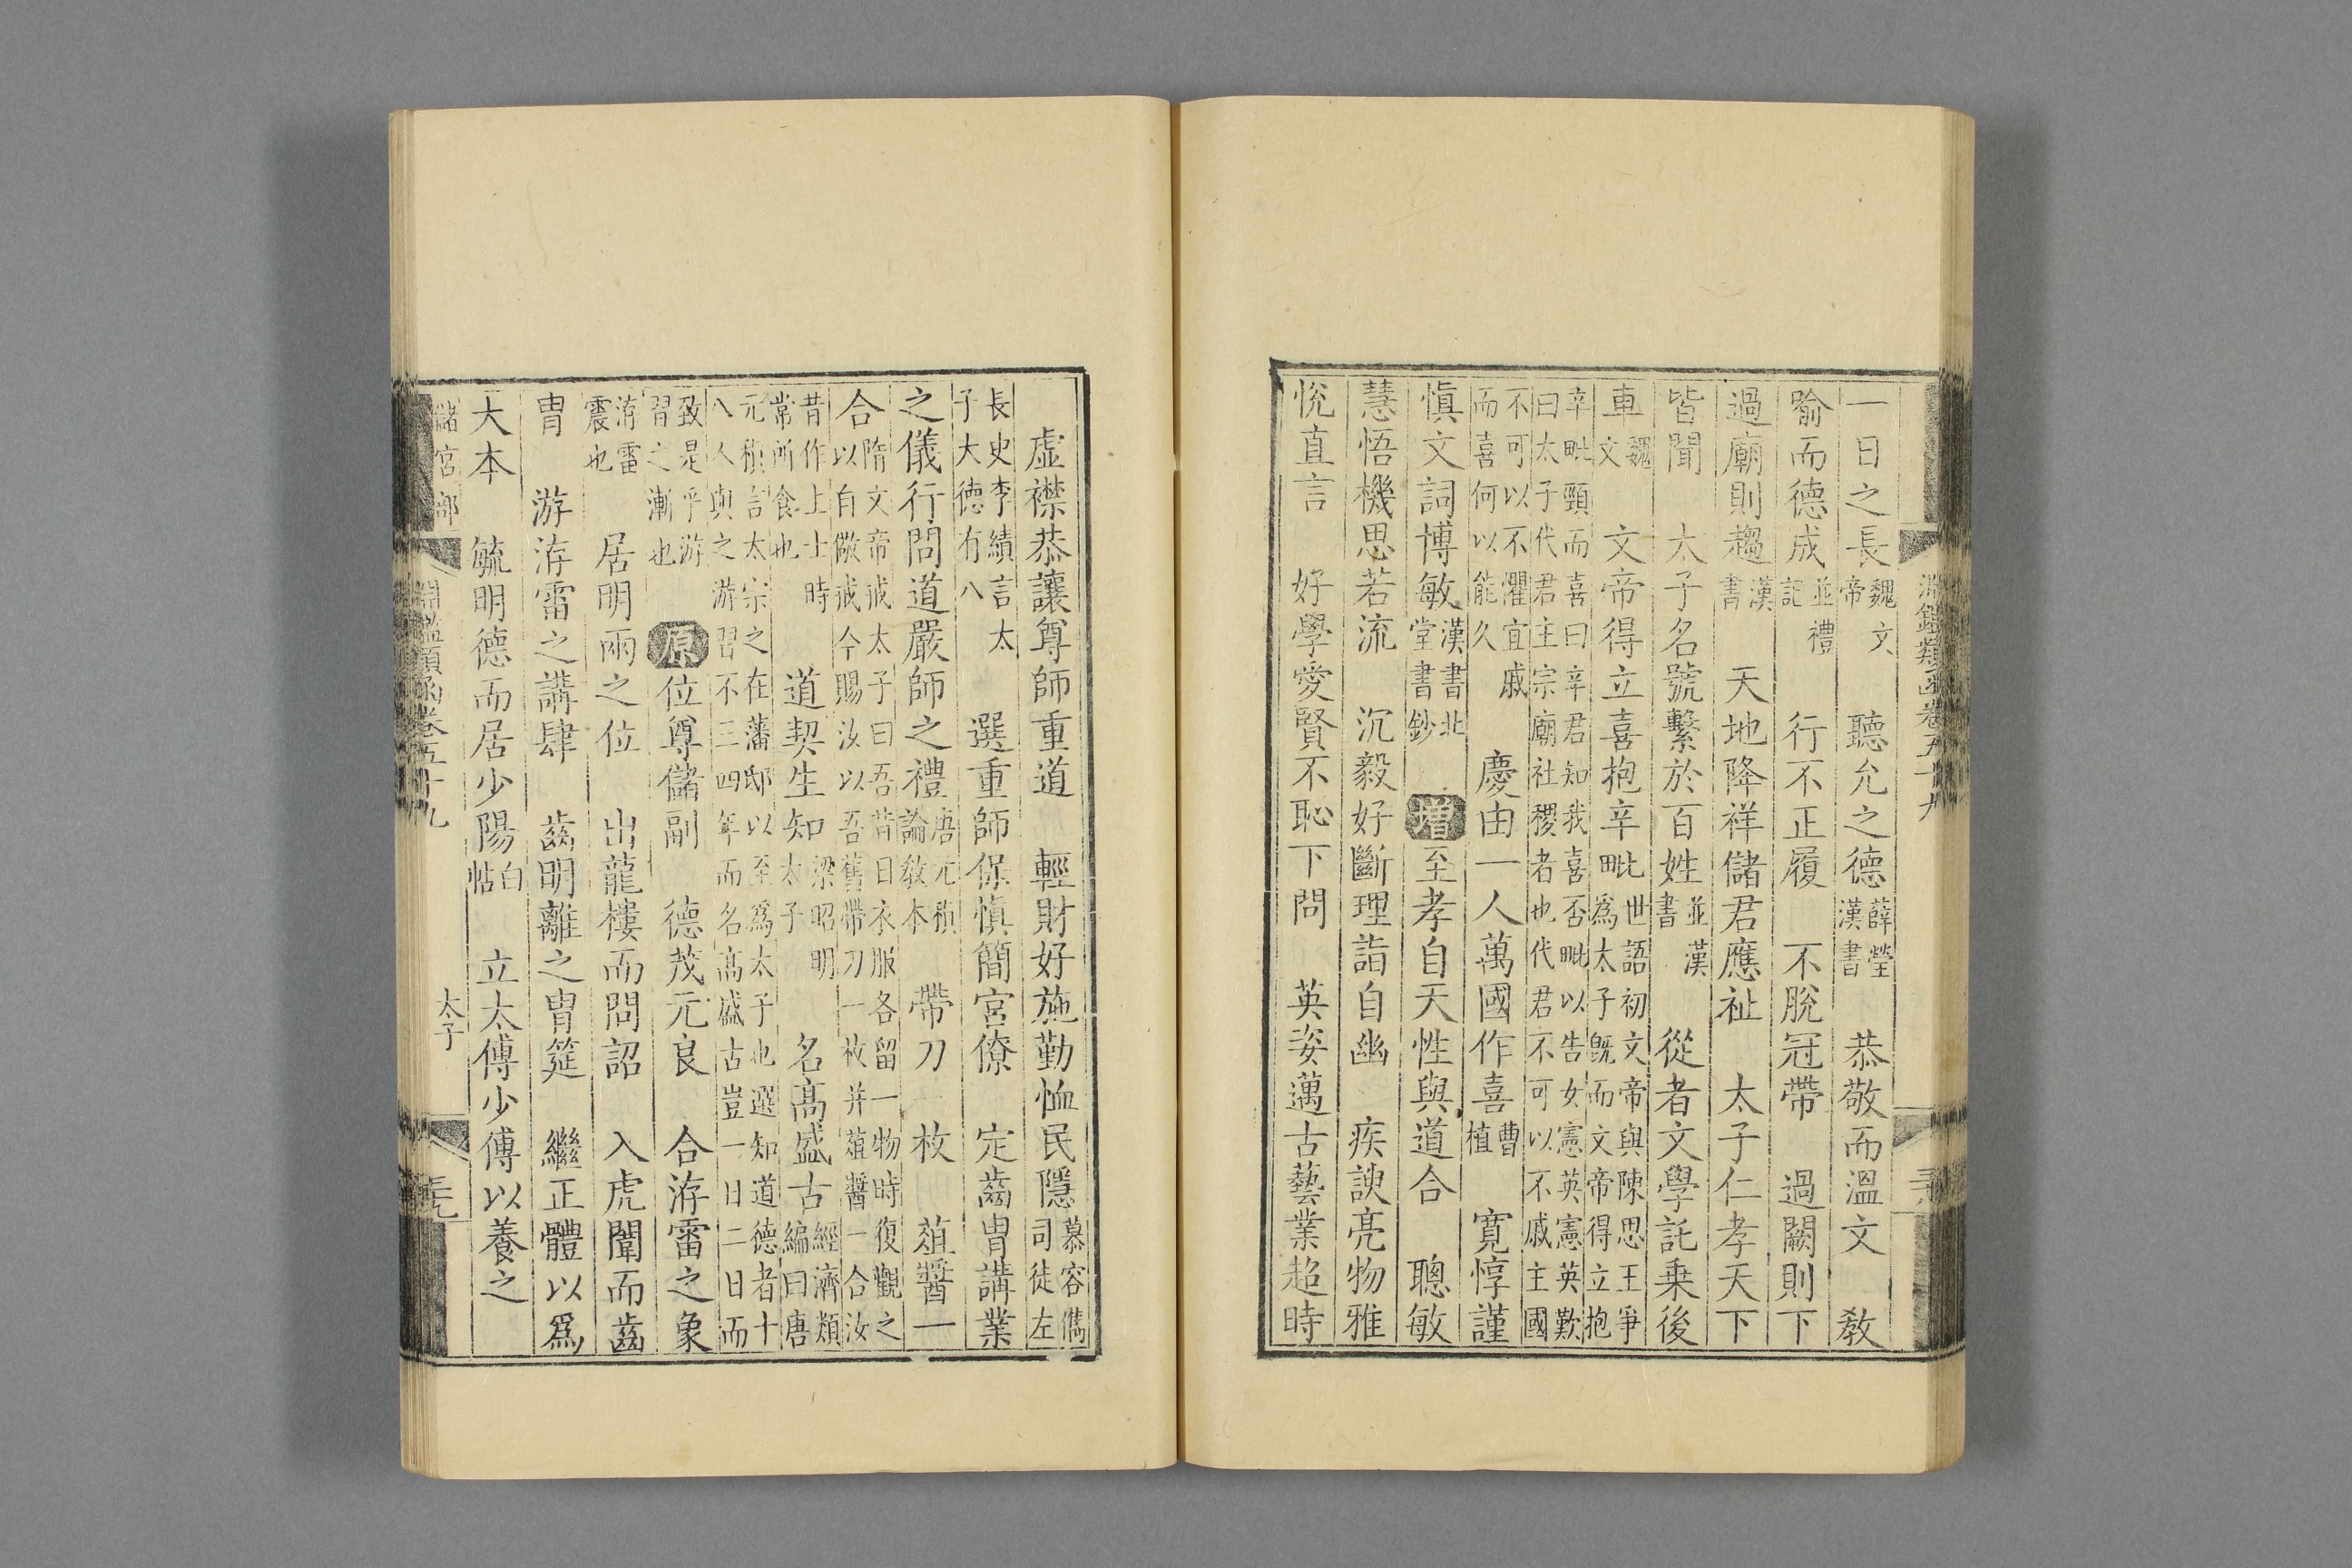 淵鑑類函卷五十九
一日之長魏文帝　聽允之德薛瑩漢書　恭敬而溫文　教
喻而德成並禮記　行不正履　不脫冠帶　過闕則下
過廟則趨漢書　天地降祥儲君應祉　太子仁孝天下
皆聞　太子名號繫於百姓並漢書　從者文學託乗後
車魏文　文帝得立喜抱辛毗世語初文帝與陳思王爭爲太子旣而文帝得立抱
辛毗頸而喜曰辛君知我喜否毗以告女憲英憲英歎曰太子代君主宗廟社稷者也代君不可以不戚主國
不可以不懼宜戚而喜何以能久　慶由一人萬國作喜曹植　寛惇謹
愼文詞博敏漢書北堂書鈔　增至孝自天性與道合　聰敏
慧悟機思若流　沉毅好斷理詣自幽　疾諛亮物雅
悅直言　好學愛賢不恥下問　英姿邁古藝業超時
虛襟恭讓尊師重道　輕財好施勤恤民隱慕容儁司徒左
長史李績言太子大德有八　選重師保愼簡宮僚　定齒冑講業
之儀行問道嚴師之禮唐元稹論教本　帶刀一枚　葅醬一
合隋文帝戒太子曰吾昔日衣服各留一物時復觀之以自儆戒今賜汝以吾舊帶刀一枚并葅醬一合汝
昔作上士時常所食也　道契生知梁昭明太子　名高盛古經濟類編曰唐
元稹言太宗之在藩邸以至爲太子也選知道德者十八人與之游習不三四年而名高盛古豈一日二日而
致是乎游習之漸也　原位尊儲副　德茂元良　合洊雷之象
洊雷震也　居明兩之位　出龍樓而問詔　入虎闈而齒
冑　游洊雷之講肆　齒明離之冑筵　繼正體以爲
大本　毓明德而居少陽白帖　立太傅少傅以養之
儲宮部　淵鑑類函卷五十九　太子